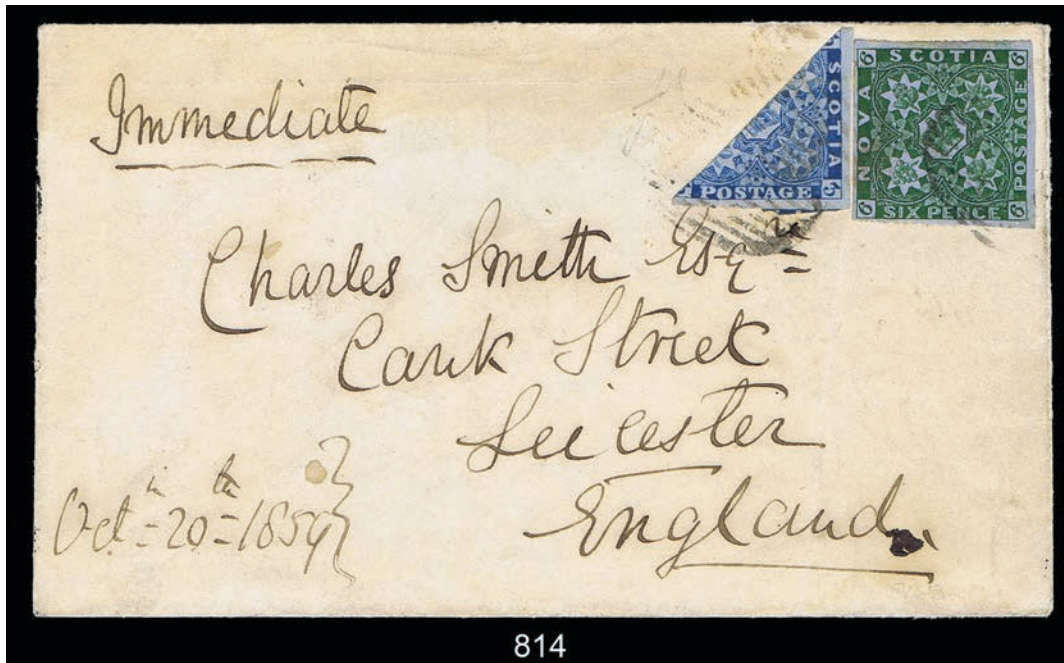 Immediate
SCOTIA
POSTAGE
5
SCOTIA
NOVA
POSTAGE
SIX PENCE
6 6 6 6
Charles Smith Esqre
Cank Street
Leicester
England.
Octr 20th 1859
814